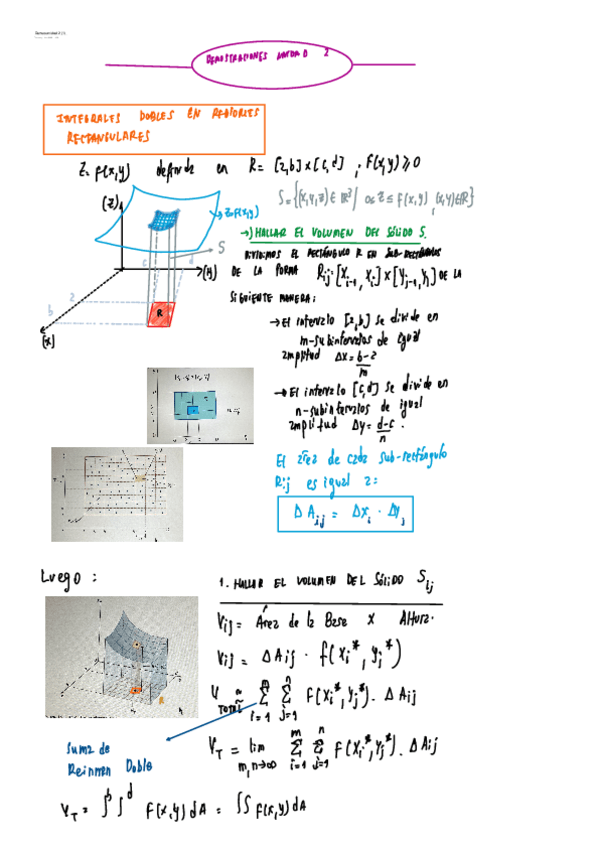 DEMOSTRACIONES UNIDAD 2
INTEGRALES DOBLES EN REGIONES
RECTANGULARES
Z= f(x,y) definida en R= [a,b]x[c,d] , F(x,y)≥0
S={(x,y,z)∈ℝ³/ 0≤Z≤F(x,y), (x,y)∈R}
(Z)
Z=F(x,y)
→) HALLAR EL VOLUMEN DEL SÓLIDO S.
S
DIVIDIMOS EL RECTÁNGULO R EN SUB-RECTÁNGULOS
c
d
(y)
DE LA FORMA Rij:[Xi-1, Xi]x[Yj-1, Yj] DE LA
a
SIGUIENTE MANERA:
b
R
(x)
→ El intervalo [a,b] se divide en
m-subintervalos de igual
amplitud Δx = b-a/m
→ El intervalo [c,d] se divide en
n-subintervalos de igual
amplitud Δy = d-c/n.
El área de cada sub-rectángulo
Rij es igual a:
ΔAij = ΔXi · ΔYj
Luego :
1. HALLAR EL VOLUMEN DEL SÓLIDO Sij
Vij = Área de la Base x Altura.
Vij = ΔAij · f(xi*, yj*)
R
V TOTAL ≈ Σ i=1 m Σ j=1 n F(xi*, yj*). ΔAij
Suma de
Reinman Doble
VT = lim m,n→∞ Σ i=1 m Σ j=1 n F(xi*, yj*). ΔAij
VT = ∫b ∫d F(x,y)dA = ∫∫ F(x,y)dA